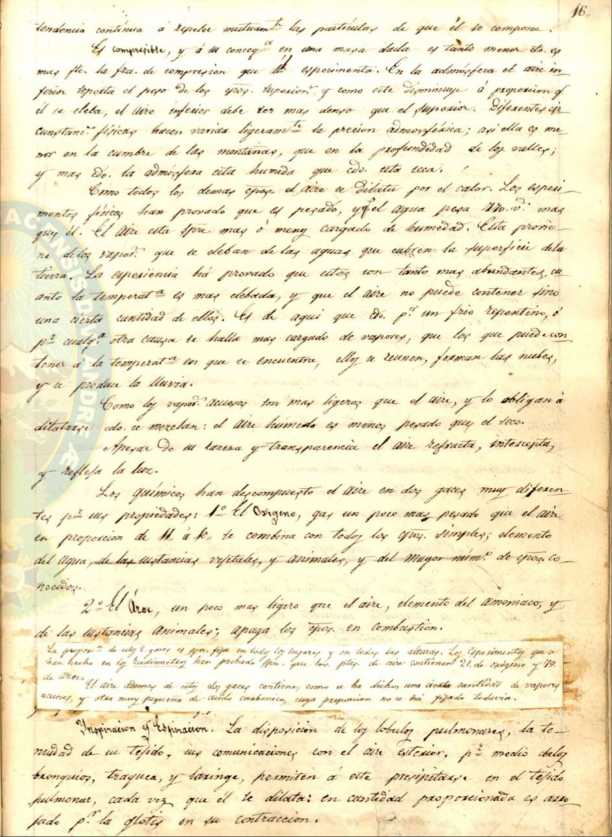 16.
tendencia continúa á repeler mutuamte las partículas de que él se compone.
Es compresible, y á su consegca en una masa dada es tanto menor cto. es
mas fte. la fza. de compresion que esperimenta. En la admósfera el aire in-
ferior soporta el peso de los superiors. y como este disminuye á proporcion q.
él se eleba, el aire inferior debe ser mas denso que el superior. Diferentes cir-
cunstancs. físicas hacen variar ligeramte la precion admosférica; asi ella es me-
nor en la cumbre de las montañas, que en la profundidad de los valles;
y mas cdo. la admosfera está humeda que cdo. está seca.
Como todos los demas cpos. el aire se dilata por el calor. Los esperi-
mentos físicos han provado que es pesado, y q. el agua pesa 770. v. mas
que él. El aire esta spre mas o menos cargado de humedad. Ella provie-
ne de los vapors. que se eleban de las aguas que cubren la superficie de la
tierra. La esperiencia há provado que estos son tanto mas abundantes, cu-
anto la temperatra es mas elebada, y que el aire no puede contener sino
una cierta cantidad de ellos. Es de aqui que cdo. pr. un frio repentino, ó
pr. cualqa. otra causa se halla mas cargado de vapores, que los que puede con-
tener á la temperatra en que se encuentra, ellos se reunen, forman las nubes,
y se produce la lluvia.
Como los vapors. acuosos son mas ligeros que el aire, y lo obligan á
dilatarse cdo. se mezclan: el aire humedo es menos pesado que el seco.
Apesar de su rareza y transparencia el aire refracta, intercepta,
y refleja la luz.
Los químicos han descompuesto el aire en dos gaces muy diferen-
tes pr. sus propiedades: 1º El Oxigeno, gas un poco mas pesado que el aire
en proporcion de 11. á 10. se combina con todos los cpos. simples; elemento
del agua, de las sustancias vejetales, y animales, y del mayor númo. de cpos. co-
nocidos.
2º El Azoe, un poco mas ligero que el aire, elemento del amoniaco, y
de las sustancias animales; apaga los cpos. en combustion.
La proporn. de estos 2. gaces es fija en todos los lugares y en todas las alturas. Los esperimentos que se
han hecho en los Eudiometros han probado que 100. ptes. de aire contienen 21. de oxigeno y 79.
de Azoe.
El aire ademas de estos dos gaces contiene, como se ha dicho, una cierta cantidad de vapores
acuosos, y otra muy pequeña de acido carbonico, cuya proporcion no se há fijado todavia.
Inspiracion y Espiracion. La disposicion de los lobulos pulmonares, la te-
nuidad de su tejido, sus comunicaciones con el aire esterior, pr. medio de los
bronquios, traquea, y laringe, permiten á este precipitarse en el tejido
pulmonar, cada vez que él se dilata: en cantidad proporcionada es arro-
jado pr. la glotis en su contraccion.